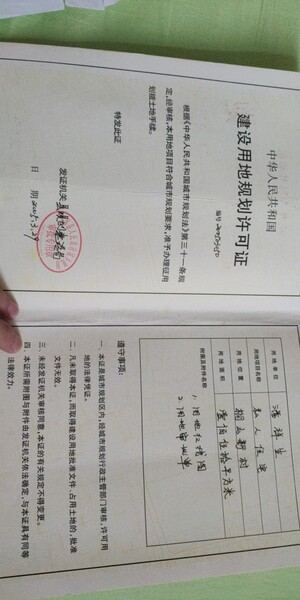 中华人民共和国
建设用地规划许可证
编号
根据《中华人民共和国城市规划法》第三十一条规
定,经审核,本用地项目符合城市规划要求,准予办理征用
划拨土地手续。
特发此证
发证机关
日 期 2005.3.29
用地单位
用地项目名称 私人住宅
用地位置
用地面积 壹佰伍拾平方米
附图及附件名称
1、用地红线图
2、用地审批单
遵守事项:
一、本证是城市规划区内,经城市规划行政主管部门审核,许可用
地的法律凭证。
二、凡未取得本证,而取得建设用地批准文件、占用土地的,批准
文件无效。
三、未经发证机关审核同意,本证的有关规定不得变更。
四、本证所需附图与附件由发证机关依法确定,与本证具有同等
法律效力。